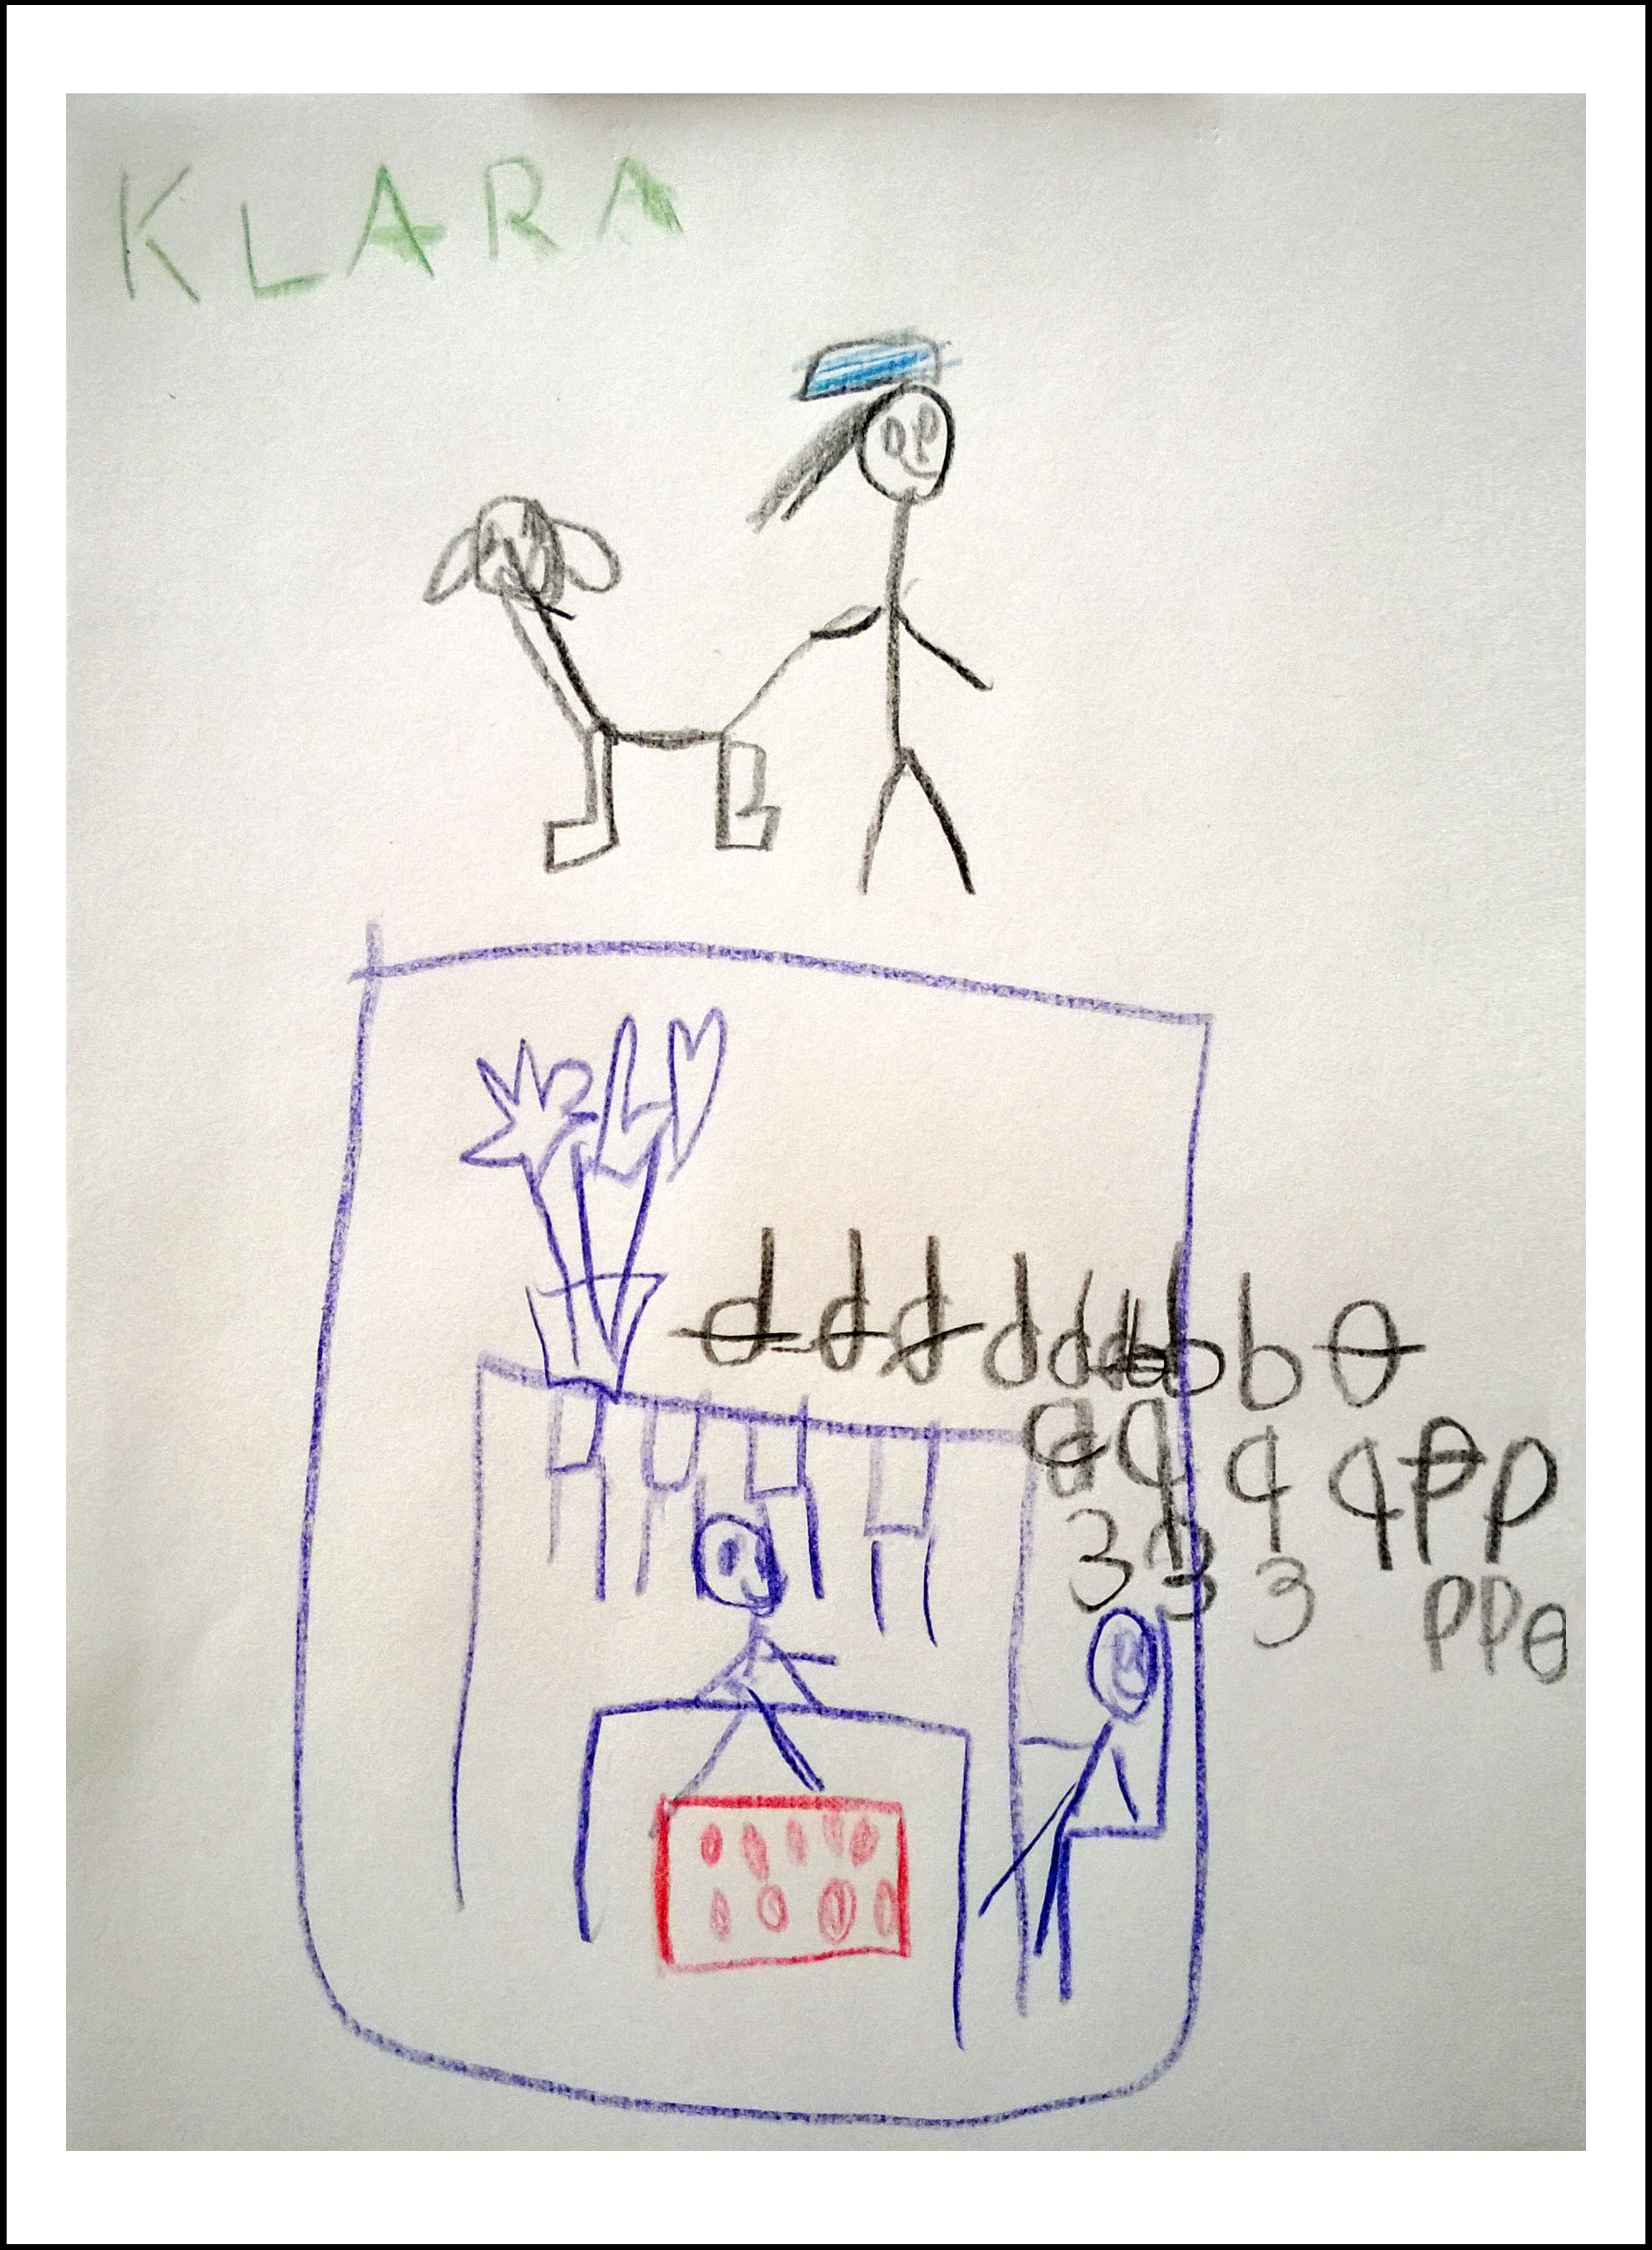 KLARA
d d d d d b b θ
q q q p p
3 3 3 p p θ